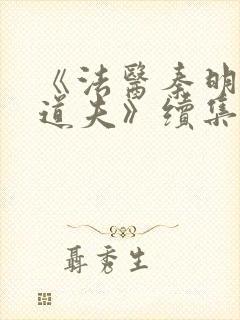 《法醫秦明
道夫》續集
聶秀生